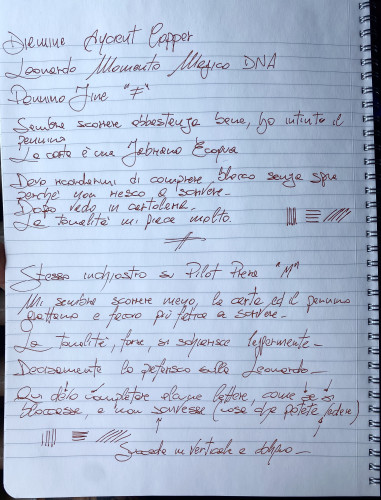 Diamine Ancient Copper
Leonardo Momento Magico DNA
Pennino Fine "F"
Sembra scorrere abbastanza bene, ho intinto il
pennino
La carta è una Fabriano Ecoqua
Devo ricordarmi di comprare blocco senza spira
perché non riesco a scrivere.
Dopo vado in cartoleria.
La tonalità mi piace molto.
Stesso inchiostro su Pilot Prera "M"
Mi sembra scorrere meno, la carta ed il pennino
grattano e faccio più fatica a scrivere.
La tonalità, forse, si schiarisce leggermente.
Decisamente lo preferisco sulla Leonardo.
Qui devo completare alcune lettere, come se si
bloccasse, e non scrivesse (cosa che potete vedere)
Succede in verticale e obliquo.